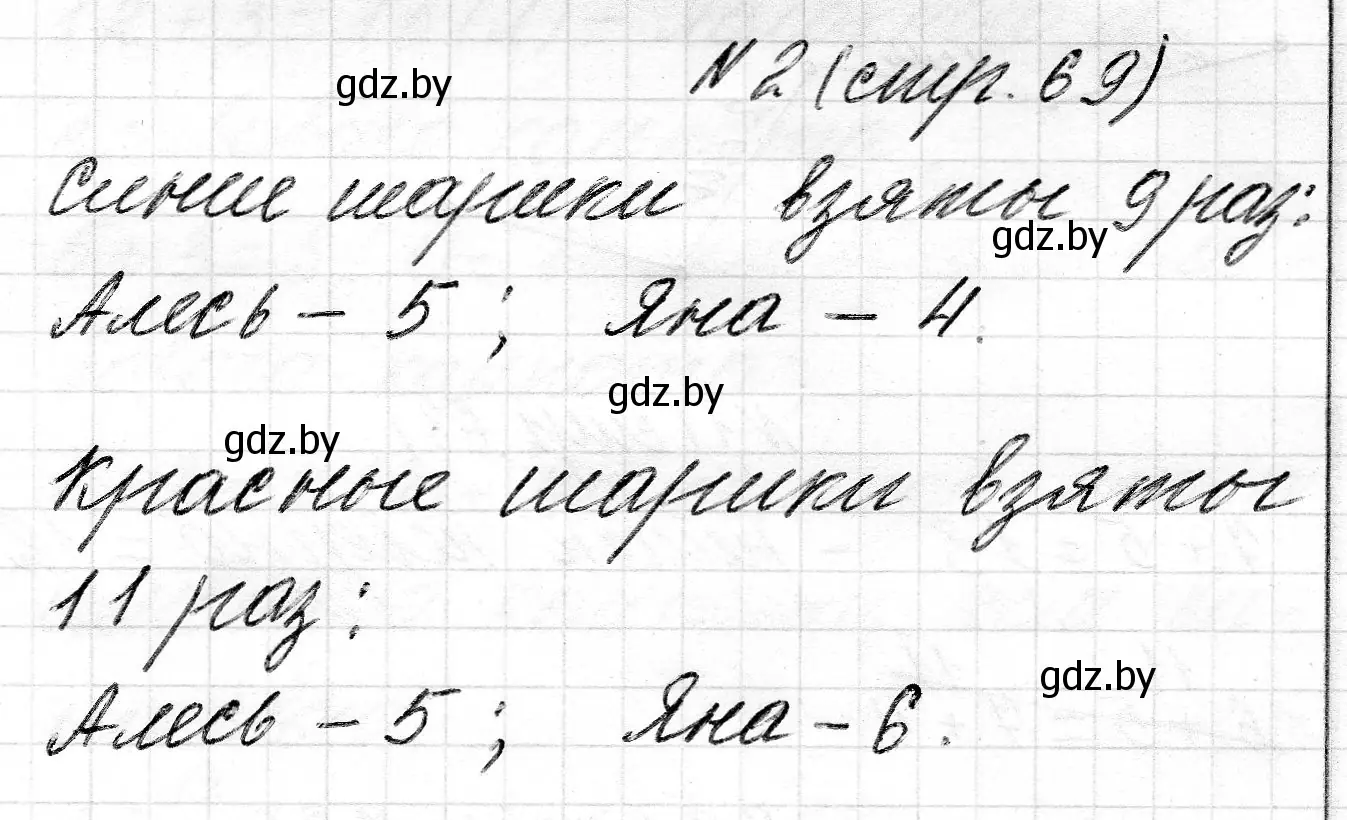 N 2 (стр. 69)
gdz.by
Синие шарики взяты 9 раз:
gdz.by
Алесь – 5 ; Яна – 4.
gdz.by
gdz.by
Красные шарики взяты
11 раз:
gdz.by
Алесь – 5 ; Яна – 6.